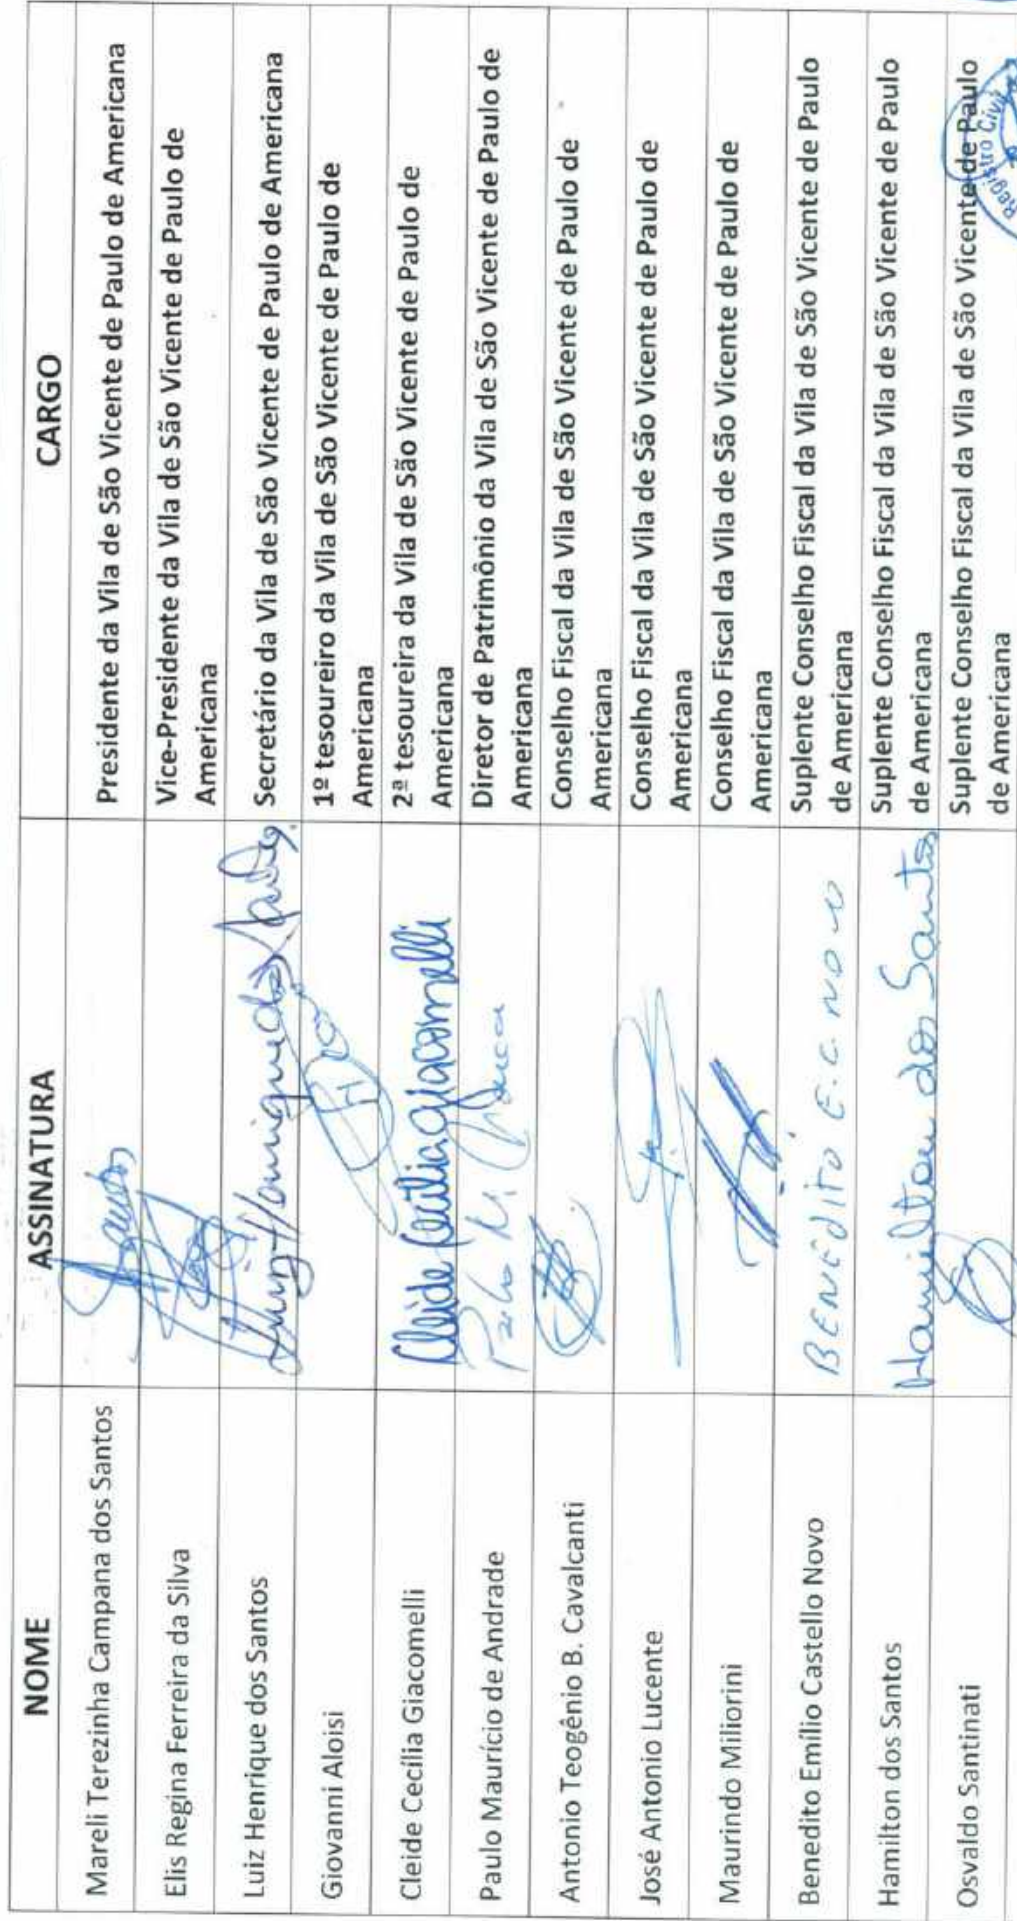 NOME ASSINATURA CARGO
Mareli Terezinha Campana dos Santos Santos Presidente da Vila de São Vicente de Paulo de Americana
Elis Regina Ferreira da Silva Vice-Presidente da Vila de São Vicente de Paulo de
Americana
Luiz Henrique dos Santos Luiz Henrique dos Santos Secretário da Vila de São Vicente de Paulo de Americana
Giovanni Aloisi 1º tesoureiro da Vila de São Vicente de Paulo de
Americana
Cleide Cecília Giacomelli Cleide Cecilia Giacomelli 2ª tesoureira da Vila de São Vicente de Paulo de
Americana
Paulo Maurício de Andrade Paulo M. Diretor de Patrimônio da Vila de São Vicente de Paulo de
Americana
Antonio Teogênio B. Cavalcanti Conselho Fiscal da Vila de São Vicente de Paulo de
Americana
José Antonio Lucente Conselho Fiscal da Vila de São Vicente de Paulo de
Americana
Maurindo Miliorini Conselho Fiscal da Vila de São Vicente de Paulo de
Americana
Benedito Emílio Castello Novo BENEDITO E.C. NOVO Suplente Conselho Fiscal da Vila de São Vicente de Paulo
de Americana
Hamilton dos Santos Hamilton dos Santos Suplente Conselho Fiscal da Vila de São Vicente de Paulo
de Americana
Osvaldo Santinati Suplente Conselho Fiscal da Vila de São Vicente de Paulo
de Americana
Registro Civil